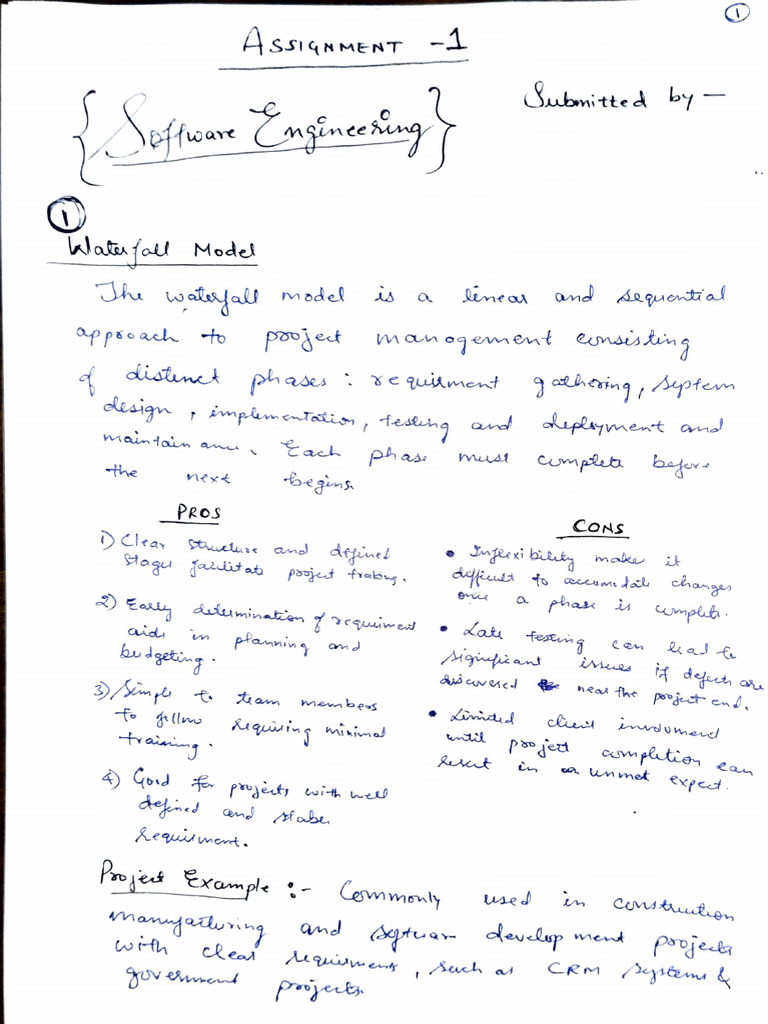 1
ASSIGNMENT - 1
{Software Engineering}
Submitted by —
1
Waterfall Model
The waterfall model is a linear and sequential
approach to project management consisting
of distinct phases : requirment gathering, system
design, implementation, testing and deployment and
maintainance. Each phase must complete before
the next begins.
PROS
1) Clear structure and defined
stages facilitate project
2) Early determination of requirment
aids in planning and
budgeting.
3) Simple to team members
to follow requiring minimal
training.
4) Good for projects with well
defined and
requirment.
CONS
• Inflexibility make it
difficult to accomodate changes
once a phase is complete.
• Late testing can lead to
significant issues if defects are
discovered near the project end.
• Limited client
until project completion can
result in unmet expect.
Project Example :- Commonly used in construction
manufacturing and software development projects
with clear requirment, such as CRM systems &
government projects.